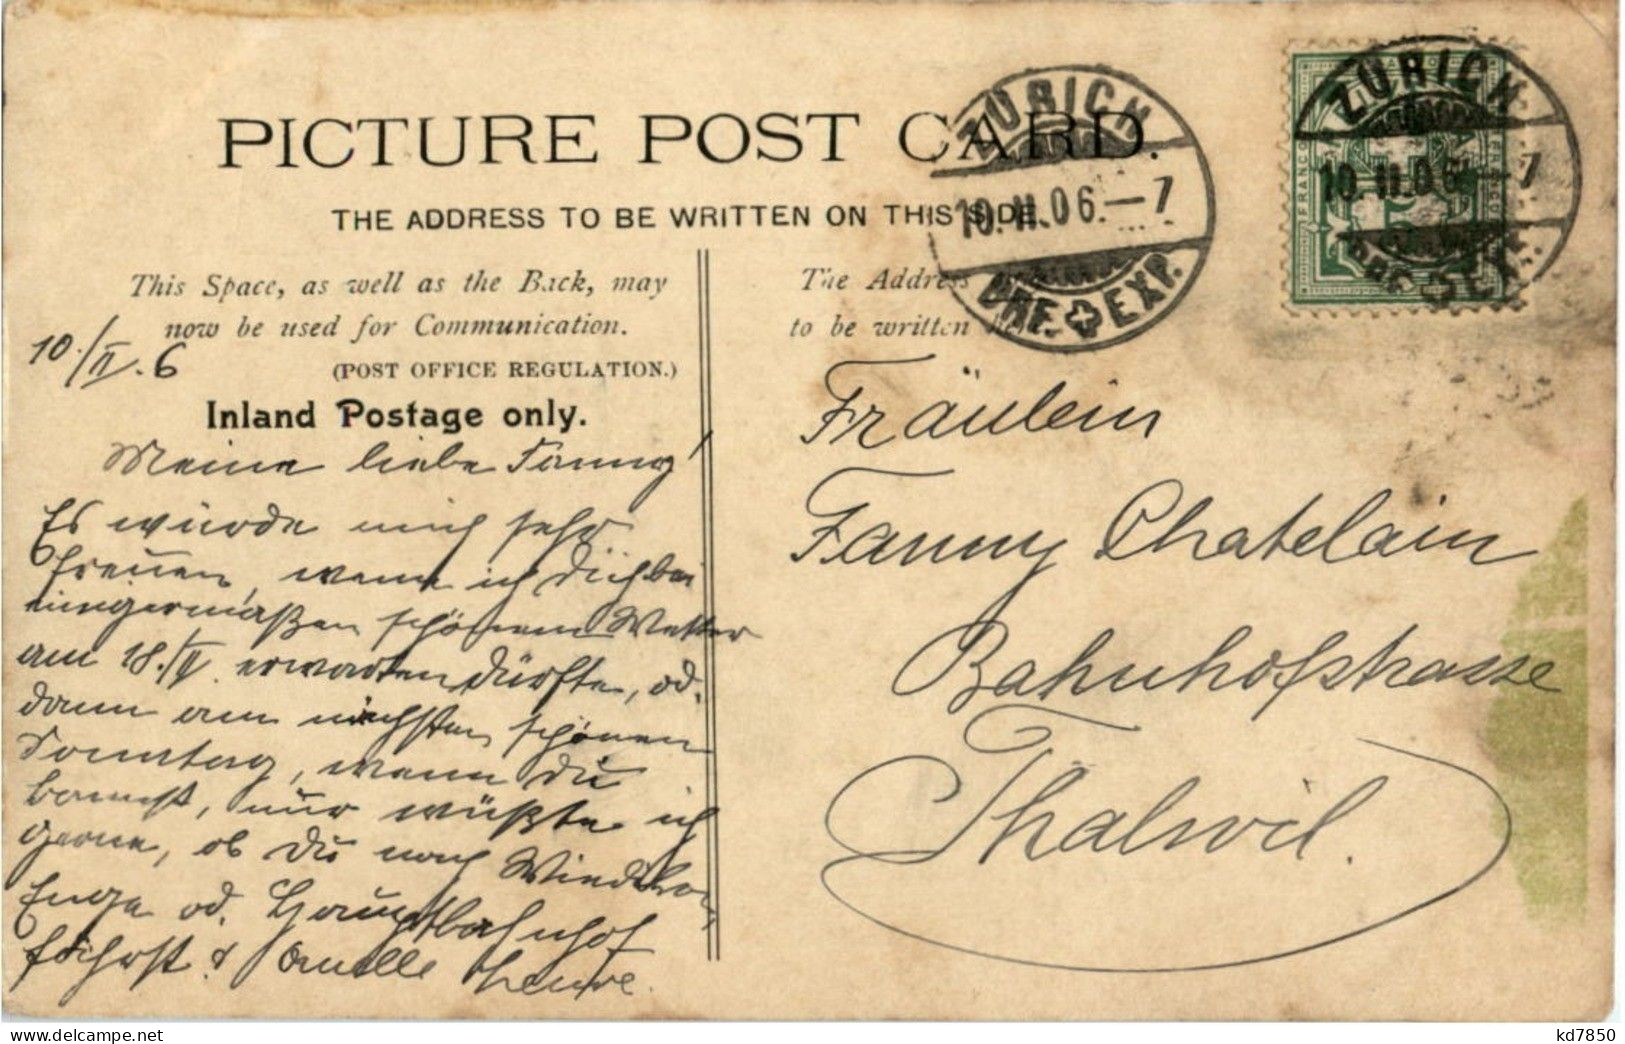 PICTURE POST CARD.
THE ADDRESS TO BE WRITTEN ON THIS SIDE.
This Space, as well as the Back, may
now be used for Communication.
(POST OFFICE REGULATION.)
Inland Postage only.
10./II.6
Meine liebe Fanny!
Es würde mich sehr
freuen, wenn ich Dich bei
einigermaßen schönem Wetter
am 18./II. erwarten dürfte, od.
dann am nächsten schönen
Sonntag, wenn Du
kommst, nur wüßte ich
gerne, ob Du nach Wiedikon,
Enge od. Hauptbahnhof
fährst. & à quelle heure.
The Address
to be written
ZÜRICH
10.II.06.–7
BRF. EXP.
ZÜRICH
10.II.06.–7
BRF. EXP.
FRANCO
Fräulein
Fanny Chatelain
Bahnhofstrasse
Thalwil.
www.delcampe.net
kd7850